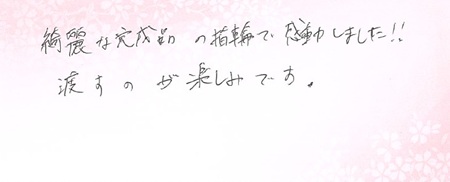 綺麗な完成品の指輪で感動しました!!
渡すのが楽しみです。